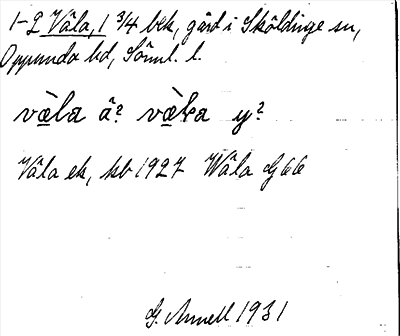 1-2 Våla, 1 3/4 bek, gård i Sköldinge sn,
Oppunda hd, Söml. l.
vå̀la ä? vå̀ɫa y?
Våla ek, kb 1927 Wåla G66
G. Annell 1931